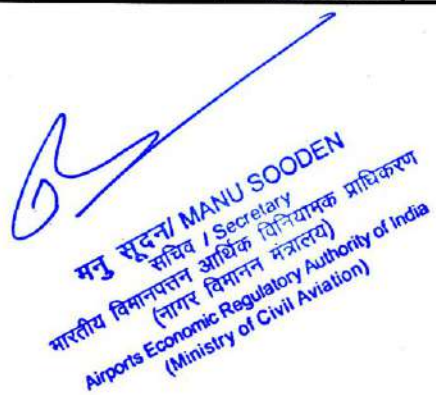 मनु सूदन/ MANU SOODEN
सचिव / Secretary
भारतीय विमानपत्तन आर्थिक विनियामक प्राधिकरण
(नागर विमानन मंत्रालय)
Airports Economic Regulatory Authority of India
(Ministry of Civil Aviation)